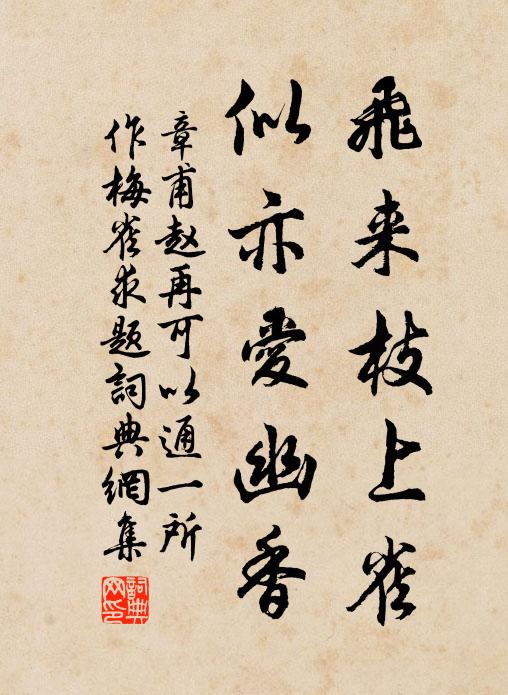 飛来枝上雀
似亦愛幽香
章甫赵再可以通一所
作梅雀求題詞典網集
詞典網印